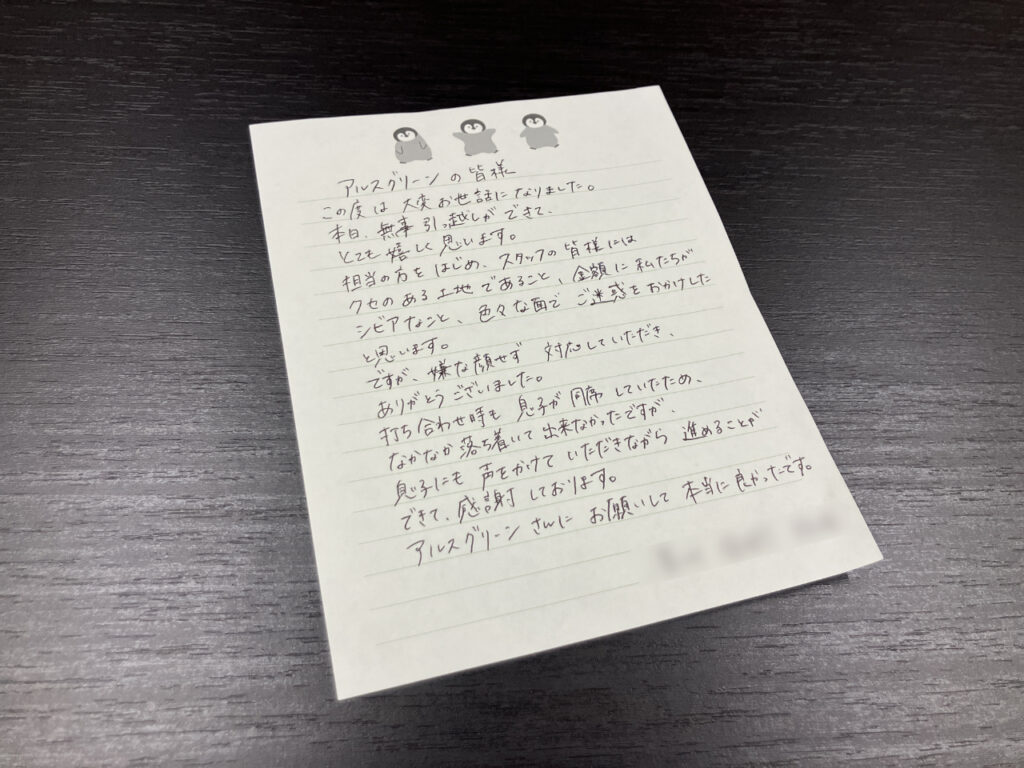 アルスグリーンの皆様
この度は大変お世話になりました。
本日、無事引っ越しができて、
とても嬉しく思います。
担当の方をはじめ、スタッフの皆様には
クセのある土地であること、金額に私たちが
シビアなこと、色々な面でご迷惑をおかけした
と思います。
ですが、嫌な顔せず対応していただき、
ありがとうございました。
打ち合わせ時も息子が同席していたため、
なかなか落ち着いて出来なかったですが、
息子にも声をかけていただきながら進めることが
できて、感謝しております。
アルスグリーンさんにお願いして本当に良かったです。